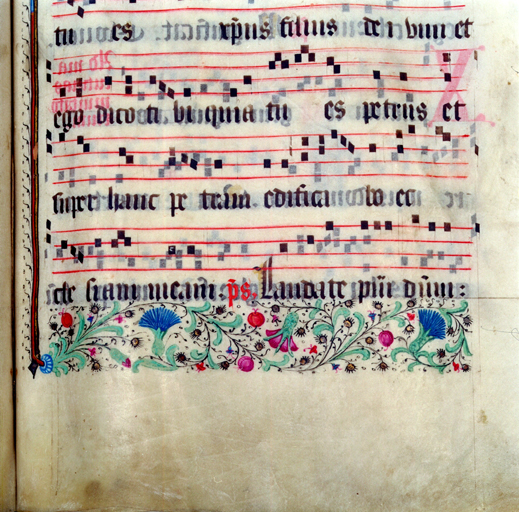 tu es xp̄us filius dei vivi et
ego dico ti bi quia tu es petrus et
super hanc pe tram edifica bo ec
cle siam meam. p̄s. Laudate pueri dn̄m: